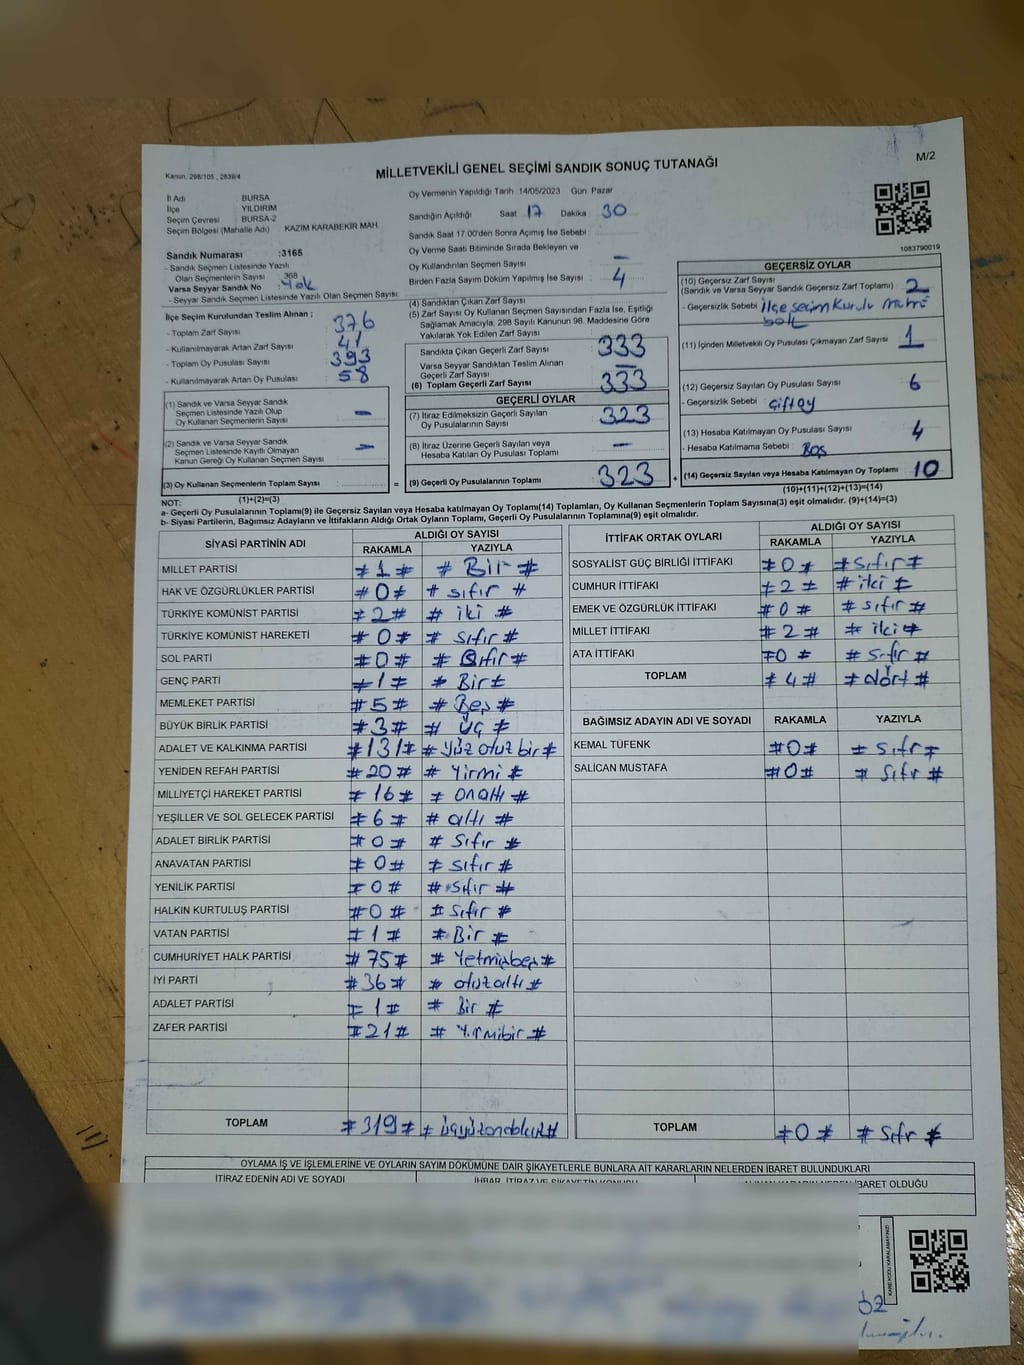 Kanun. 298/105 , 2839/4
MİLLETVEKİLİ GENEL SEÇİMİ SANDIK SONUÇ TUTANAĞI
M/2
İl Adı BURSA
İlçe YILDIRIM
Seçim Çevresi BURSA-2
Seçim Bölgesi (Mahalle Adı) KAZIM KARABEKİR MAH
Sandık Numarası :3165
- Sandık Seçmen Listesinde Yazılı
Olan Seçmenlerin Sayısı 368
Varsa Seyyar Sandık No : Yok
- Seyyar Sandık Seçmen Listesinde Yazılı Olan Seçmen Sayısı:
İlçe Seçim Kurulundan Teslim Alınan ;
- Toplam Zarf Sayısı 376
- Kullanılmayarak Artan Zarf Sayısı 41
- Toplam Oy Pusulası Sayısı 393
- Kullanılmayarak Artan Oy Pusulası 58
(1) Sandık ve Varsa Seyyar Sandık
Seçmen Listesinde Yazılı Olup
Oy Kullanan Seçmenlerin Sayısı –
(2) Sandık ve Varsa Seyyar Sandık
Seçmen Listesinde Kayıtlı Olmayan
Kanun Gereği Oy Kullanan Seçmen Sayısı –
(3) Oy Kullanan Seçmenlerin Toplam Sayısı =
(1)+(2)=(3)
Oy Vermenin Yapıldığı Tarih 14/05/2023 Gün Pazar
Sandığın Açıldığı Saat 17 Dakika 30
Sandık Saat 17.00'den Sonra Açımış İse Sebebi :
Oy Verme Saati Bitiminde Sırada Bekleyen ve
Oy Kullandırılan Seçmen Sayısı –
Birden Fazla Sayım Döküm Yapılmış İse Sayısı 4
(4) Sandıktan Çıkan Zarf Sayısı
(5) Zarf Sayısı Oy Kullanan Seçmen Sayısından Fazla İse, Eşitliği
Sağlamak Amacıyla, 298 Sayılı Kanunun 98. Maddesine Göre
Yakılarak Yok Edilen Zarf Sayısı
Sandıkta Çıkan Geçerli Zarf Sayısı 333
Varsa Seyyar Sandıktan Teslim Alınan
Geçerli Zarf Sayısı –
(6) Toplam Geçerli Zarf Sayısı 333
GEÇERLİ OYLAR
(7) İtiraz Edilmeksizin Geçerli Sayılan
Oy Pusulalarının Sayısı 323
(8) İtiraz Üzerine Geçerli Sayılan veya
Hesaba Katılan Oy Pusulası Toplamı –
(9) Geçerli Oy Pusulalarının Toplamı 323 +
1083790019
GEÇERSİZ OYLAR
(10) Geçersiz Zarf Sayısı
(Sandık ve Varsa Seyyar Sandık Geçersiz Zarf Toplamı) 2
- Geçersizlik Sebebi : ilçe seçim Kurulu
(11) İçinden Milletvekili Oy Pusulası Çıkmayan Zarf Sayısı 1
(12) Geçersiz Sayılan Oy Pusulası Sayısı 6
- Geçersizlik Sebebi : çift oy
(13) Hesaba Katılmayan Oy Pusulası Sayısı 4
- Hesaba Katılmama Sebebi : Boş
(14) Geçersiz Sayılan veya Hesaba Katılmayan Oy Toplamı 10
(10)+(11)+(12)+(13)=(14)
NOT:
a- Geçerli Oy Pusulalarının Toplamı(9) ile Geçersiz Sayılan veya Hesaba katılmayan Oy Toplam(14) Toplamları, Oy Kullanan Seçmenlerin Toplam Sayısına(3) eşit olmalıdır. (9)+(14)=(3)
b- Siyasi Partilerin, Bağımsız Adayların ve İttifakların Aldığı Ortak Oyların Toplamı, Geçerli Oy Pusulalarının Toplamına(9) eşit olmalıdır.
SİYASİ PARTİNİN ADI ALDIĞI OY SAYISI
RAKAMLA YAZIYLA
MİLLET PARTİSİ # 1 # # Bir #
HAK VE ÖZGÜRLÜKLER PARTİSİ # 0 # # sıfır #
TÜRKİYE KOMÜNİST PARTİSİ # 2 # # iki #
TÜRKİYE KOMÜNİST HAREKETİ # 0 # # sıfır #
SOL PARTİ # 0 # # Sıfır #
GENÇ PARTİ # 1 # # Bir #
MEMLEKET PARTİSİ # 5 # # Beş #
BÜYÜK BİRLİK PARTİSİ # 3 # # üç #
ADALET VE KALKINMA PARTİSİ # 131 # # yüz otuz bir #
YENİDEN REFAH PARTİSİ # 20 # # Yirmi #
MİLLİYETÇİ HAREKET PARTİSİ # 16 # # onaltı #
YEŞİLLER VE SOL GELECEK PARTİSİ # 6 # # altı #
ADALET BİRLİK PARTİSİ # 0 # # Sıfır #
ANAVATAN PARTİSİ # 0 # # sıfır #
YENİLİK PARTİSİ # 0 # # Sıfır #
HALKIN KURTULUŞ PARTİSİ # 0 # # Sıfır #
VATAN PARTİSİ # 1 # # Bir #
CUMHURİYET HALK PARTİSİ # 75 # # Yetmişbeş #
İYİ PARTİ # 36 # # otuzaltı #
ADALET PARTİSİ # 1 # # Bir #
ZAFER PARTİSİ # 21 # # Yirmibir #
TOPLAM # 319 # # üçyüzondokuz #
İTTİFAK ORTAK OYLARI ALDIĞI OY SAYISI
RAKAMLA YAZIYLA
SOSYALİST GÜÇ BİRLİĞİ İTTİFAKI # 0 # # sıfır #
CUMHUR İTTİFAKI # 2 # # iki #
EMEK VE ÖZGÜRLÜK İTTİFAKI # 0 # # sıfır #
MİLLET İTTİFAKI # 2 # # iki #
ATA İTTİFAKI # 0 # # sıfır #
TOPLAM # 4 # # dört #
BAĞIMSIZ ADAYIN ADI VE SOYADI RAKAMLA YAZIYLA
KEMAL TÜFENK # 0 # # sıfr #
SALİCAN MUSTAFA # 0 # # Sıfr #
TOPLAM # 0 # # Sıfr #
OYLAMA İŞ VE İŞLEMLERİNE VE OYLARIN SAYIM DÖKÜMÜNE DAİR ŞİKAYETLERLE BUNLARA AİT KARARLARIN NELERDEN İBARET BULUNDUKLARI
İTİRAZ EDENİN ADI VE SOYADI İHBAR, İTİRAZ VE ŞİKAYETİN KONUSU ALINAN KARARIN NEDEN İBARET OLDUĞU